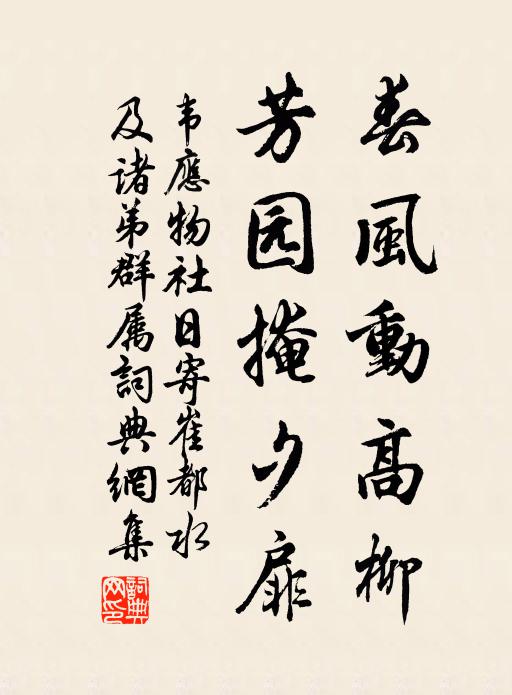 春風動高柳
芳园掩夕扉
韦應物社日寄崔都水
及诸弟群属詞典網集
詞典网印